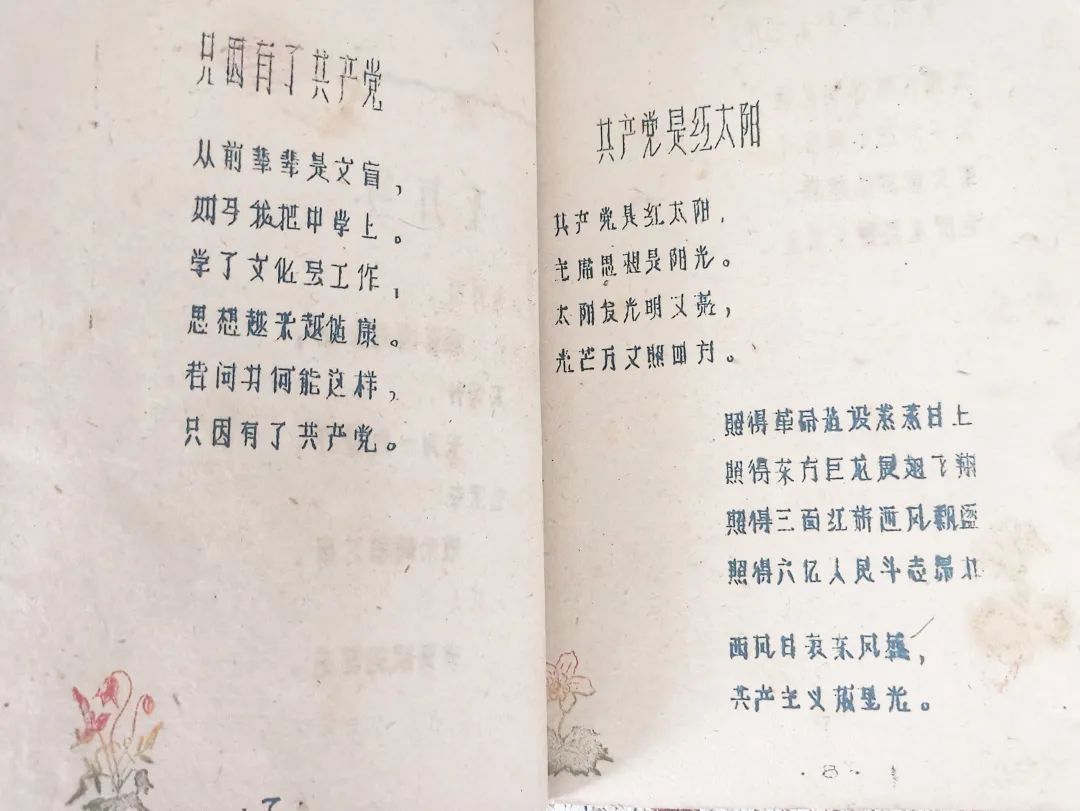 只因有了共产党
从前辈辈是文盲，
如今我把中学上。
学了文化会工作，
思想越来越健康。
若问为何能这样，
只因有了共产党。
·7·
共产党是红太阳
共产党是红太阳，
主席思想是阳光。
太阳发光明又亮，
光芒万丈照四方。
照得革命建设蒸蒸日上
照得东方巨龙展翅飞翔
照得三面红旗迎风飘
照得六亿人民斗志昂
西风日衰东风盛，
共产主义放星光。
·8·